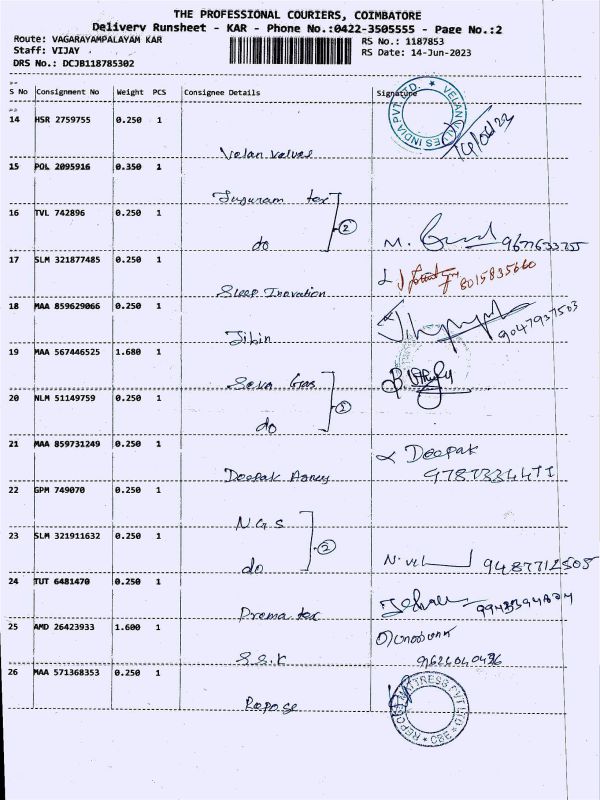 THE PROFESSIONAL COURIERS, COIMBATORE
Delivery Runsheet - KAR - Phone No.:0422-3505555 - Page No.:2
Route: VAGARAYAMPALAYAM KAR
RS No.: 1187853
Staff: VIJAY
RS Date: 14-Jun-2023
DRS No.: DCJB118785302
S No Consignment No Weight PCS Consignee Details Signature
VELAN VALVES INDIA PVT. LTD.
14 HSR 2759755 0.250 1
14/06/23
Velan Valves
15 POL 2095916 0.350 1
tex
16 TVL 742896 0.250 1 2
do M. 9677633755
17 SLM 321877485 0.250 1
8015835660
Sleep Inovation
18 MAA 859629066 0.250 1
9047937503
Jibin
19 MAA 567446525 1.680 1
Seva Gas
20 NLM 51149759 0.250 1 2
do
21 MAA 859731249 0.250 1
Deepak
Deepak Agney
22 GPM 749070 0.250 1
N.G.S
23 SLM 321911632 0.250 1 2
do 9487712505
24 TUT 6481470 0.250 1
Prema tex
25 AMD 26423933 1.600 1
S.S.K 9626040436
26 MAA 571368353 0.250 1
Repose
REPOSE MATTRESS PVT LTD CBE